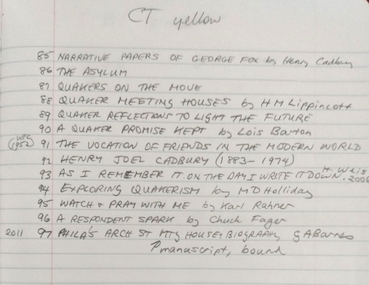 CT yellow
85 NARRATIVE PAPERS OF GEORGE FOX by Henry Cadbury
86 THE ASYLUM
87 QUAKERS ON THE MOVE
88 QUAKER MEETING HOUSES by H M Lippincott
89 QUAKER REFLECTIONS TO LIGHT THE FUTURE
90 A QUAKER PROMISE KEPT by Lois Barton
(1952) 91 THE VOCATION OF FRIENDS IN THE MODERN WORLD
92 HENRY JOEL CADBURY (1883-1974)
93 AS I REMEMBER IT ON THE DAY I WRITE IT DOWN. 2006
94 EXPLORING QUAKERISM by MD Holliday
95 WATCH & PRAY WITH ME by Karl Rahner
96 A RESPONDENT SPARK by Chuck Fager
2011 97 PHILA'S ARCH ST MTG HOUSE: BIOGRAPHY G A Barnes
manuscript, bound